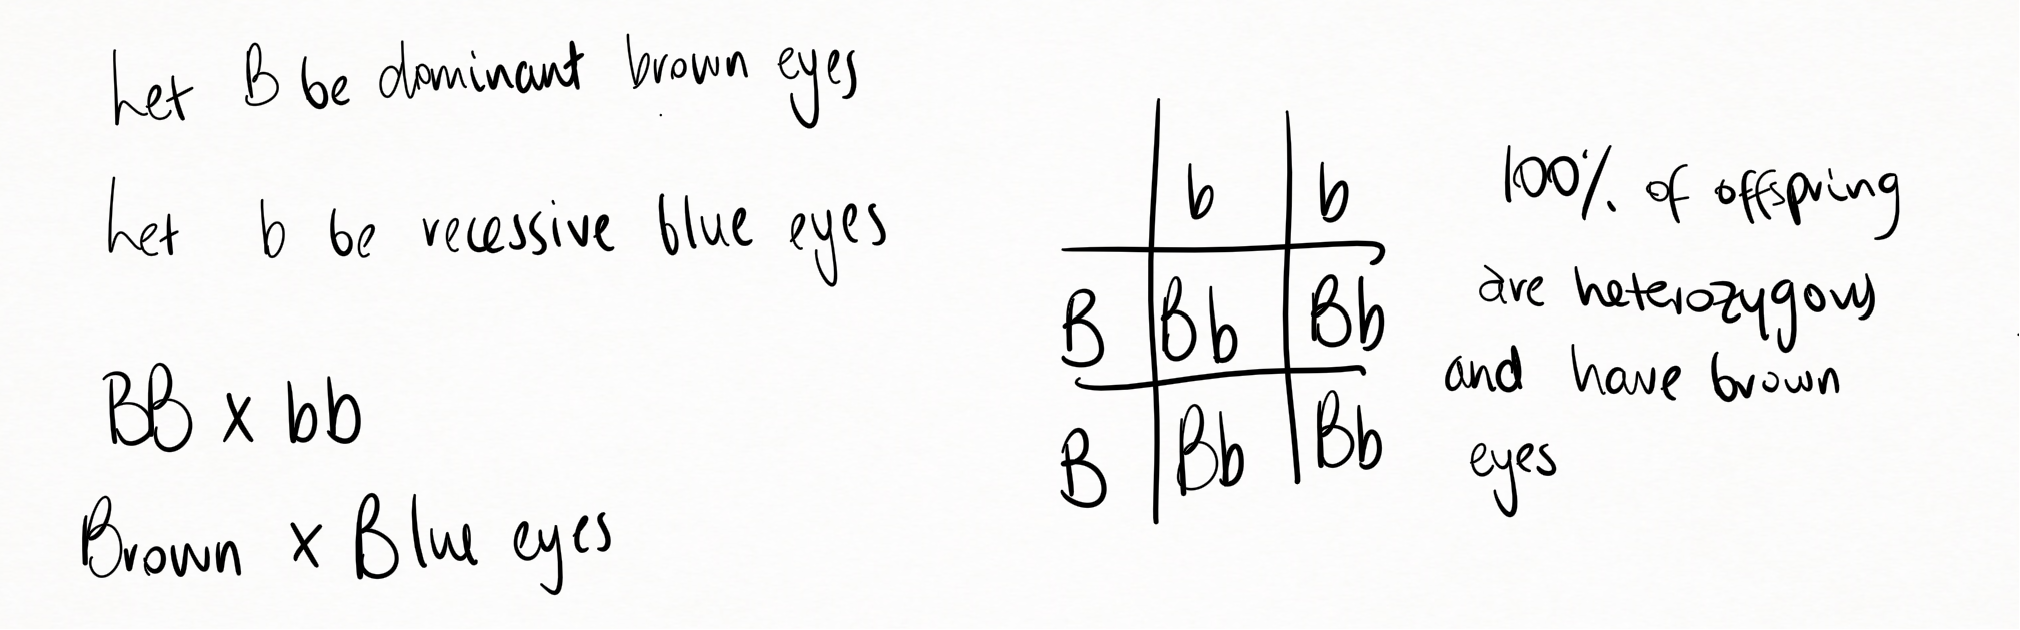 Let B be dominant brown eyes
Let b be recessive blue eyes
BB x bb
Brown x Blue eyes
b b
B Bb Bb
B Bb Bb
100% of offspring
are heterozygous
and have brown
eyes